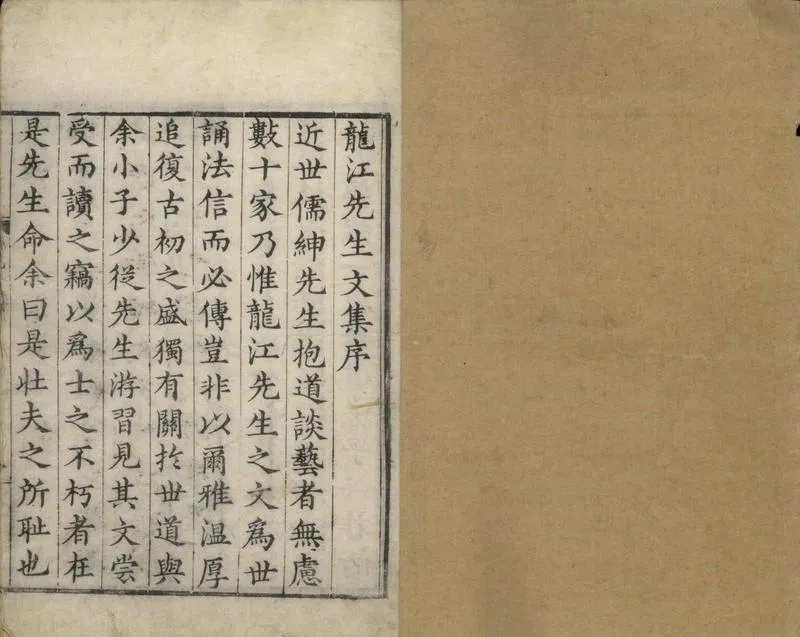 龍江先生文集序
近世儒紳先生抱道談藝者無慮
數十家乃惟龍江先生之文爲世
誦法信而必傳豈非以爾雅温厚
追復古初之盛獨有關扵世道與
余小子少從先生游習見其文嘗
受而讀之竊以爲士之不朽者在
是先生命余曰是壯夫之所耻也